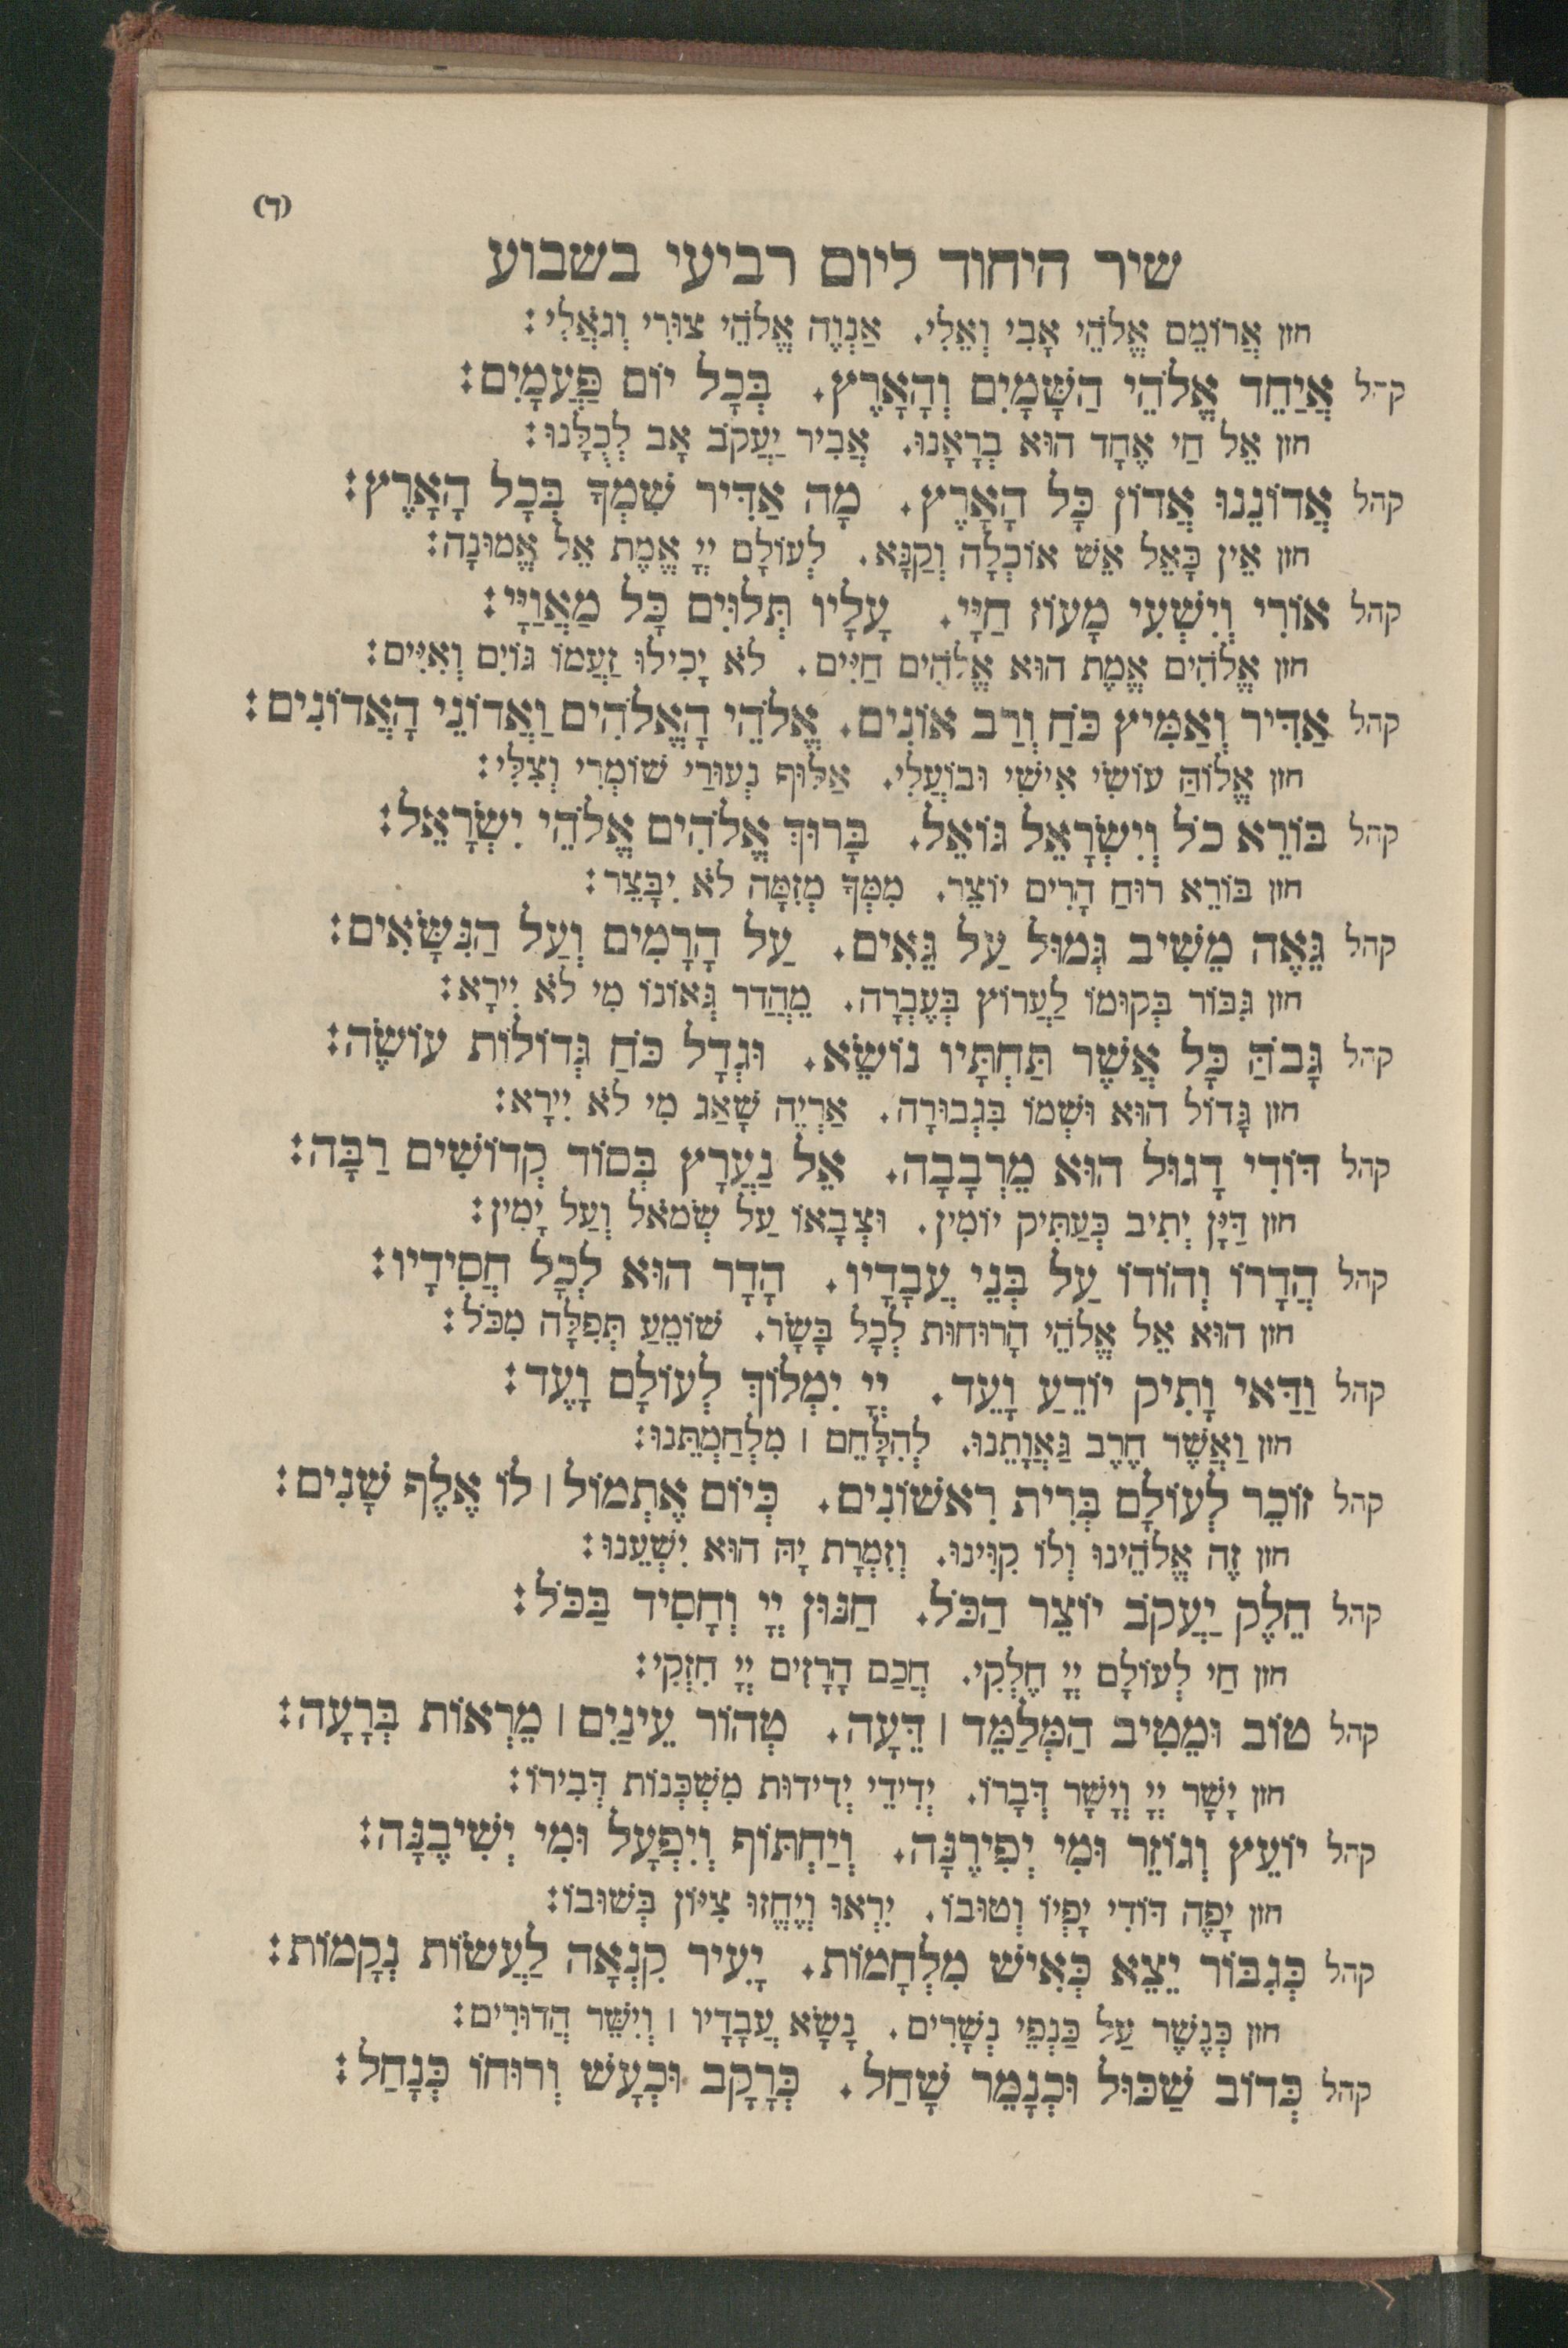 (ד)
שיר היחוד ליום רביעי בשבוע
חזן אֲרוֹמֵם אֱלֹהֵי אָבִי וְאֵלִי. אַנְוֶה אֱלֹהֵי צוּרִי וְגֹאֲלִי:
קהל אֲיַחֵד אֱלֹהֵי הַשָּׁמַיִם וְהָאָרֶץ. בְּכָל יוֹם פַּעֲמָיִם:
חזן אֵל חַי אֶחָד הוּא בְרָאָנוּ. אֲבִיר יַעֲקֹב אָב לְכֻלָּנוּ:
קהל אֲדוֹנֵנוּ אֲדוֹן כָּל הָאָרֶץ. מָה אַדִּיר שִׁמְךָ בְּכָל הָאָרֶץ:
חזן אֵין כָּאֵל אֵשׁ אוֹכְלָה וְקַנָּא. לְעוֹלָם יְיָ אֱמֶת אֵל אֱמוּנָה:
קהל אוֹרִי וְיִשְׁעִי מָעוֹז חַיָּי. עָלָיו תְּלוּיִם כָּל מַאֲוַיָּי:
חזן אֱלֹהִים אֱמֶת הוּא אֱלֹהִים חַיִּים. לֹא יָכִילוּ זַעֲמוֹ גּוֹיִם וְאִיִּים:
קהל אַדִּיר וְאַמִּיץ כֹּחַ וְרַב אוֹנִים. אֱלֹהֵי הָאֱלֹהִים וַאֲדוֹנֵי הָאֲדוֹנִים:
חזן אֱלוֹהַּ עוֹשִׂי אִישִׁי וּבוֹעֲלִי. אַלּוּף נְעוּרַי שׁוֹמְרִי וְצִלִּי:
קהל בּוֹרֵא כֹל וְיִשְׂרָאֵל גּוֹאֵל. בָּרוּךְ אֱלֹהִים אֱלֹהֵי יִשְׂרָאֵל:
חזן בּוֹרֵא רוּחַ הָרִים יוֹצֵר. מִמְּךָ מְזִמָּה לֹא יִבָּצֵר:
קהל גֵּאֶה מֵשִׁיב גְּמוּל עַל גֵּאִים. עַל הָרָמִים וְעַל הַנִּשָּׂאִים:
חזן גִּבּוֹר בְּקוּמוֹ לַעֲרוֹץ בְּעֶבְרָה. מֵהֲדַר גְּאוֹנוֹ מִי לֹא יִירָא:
קהל גָּבֹהַּ כָּל אֲשֶׁר תַּחְתָּיו נוֹשֵׂא. וּגְדָל כֹּחַ גְּדוֹלוֹת עוֹשֶׂה:
חזן גָּדוֹל הוּא וּשְׁמוֹ בִּגְבוּרָה. אַרְיֵה שָׁאַג מִי לֹא יִירָא:
קהל דּוֹדִי דָגוּל הוּא מֵרְבָבָה. אֵל נַעֲרָץ בְּסוֹד קְדוֹשִׁים רַבָּה:
חזן דַּיָּן יְתִיב כְּעַתִּיק יוֹמִין. וּצְבָאוֹ עַל שְׂמֹאל וְעַל יָמִין:
קהל הֲדָרוֹ וְהוֹדוֹ עַל בְּנֵי עֲבָדָיו. הָדָר הוּא לְכָל חֲסִידָיו:
חזן הוּא אֵל אֱלֹהֵי הָרוּחוֹת לְכָל בָּשָׂר. שׁוֹמֵעַ תְּפִלָּה מִכֹּל:
קהל וַדַּאי וָתִיק יוֹדֵעַ וָעֵד. יְיָ יִמְלוֹךְ לְעוֹלָם וָעֶד:
חזן וַאֲשֶׁר חֶרֶב גַּאֲוָתֵנוּ. לְהִלָּחֵם | מִלְחַמְתֵּנוּ:
קהל זוֹכֵר לְעוֹלָם בְּרִית רִאשׁוֹנִים. כְּיוֹם אֶתְמוֹל | לוֹ אֶלֶף שָׁנִים:
חזן זֶה אֱלֹהֵינוּ וְלוֹ קִוִּינוּ. וְזִמְרָת יָהּ הוּא יִשְׁעֵנוּ:
קהל חֵלֶק יַעֲקֹב יוֹצֵר הַכֹּל. חַנּוּן יְיָ וְחָסִיד בַּכֹּל:
חזן חַי לְעוֹלָם יְיָ חֶלְקִי. חֲכַם הָרָזִים יְיָ חִזְקִי:
קהל טוֹב וּמֵטִיב הַמְּלַמֵּד | דֵּעָה. טְהוֹר עֵינַיִם | מֵרְאוֹת בְּרָעָה:
חזן יָשָׁר יְיָ וְיָשָׁר דְּבָרוֹ. יְדִידֵי יְדִידוּת מִשְׁכְּנוֹת דְּבִירוֹ:
קהל יוֹעֵץ וְגוֹזֵר וּמִי יְפִירֶנָּה. וְיַחְתּוֹף וְיִפְעָל וּמִי יְשִׁיבֶנָּה:
חזן יָפֶה דּוֹדִי יָפְיוֹ וְטוּבוֹ. יִרְאוּ וְיֶחֱזוּ צִיּוֹן בְּשׁוּבוֹ:
קהל כְּגִבּוֹר יֵצֵא כְּאִישׁ מִלְחָמוֹת. יָעִיר קִנְאָה לַעֲשׂוֹת נְקָמוֹת:
חזן כְּנֶשֶׁר עַל כַּנְפֵי נְשָׁרִים. נָשָׂא עֲבָדָיו | וְיִשֵּׁר הֲדוּרִים:
קהל כְּדוֹב שַׁכּוּל וּכְנָמֵר שָׁחַל. כְּרָקָב וּכְעָשׁ וְרוּחוֹ כְּנָחַל: